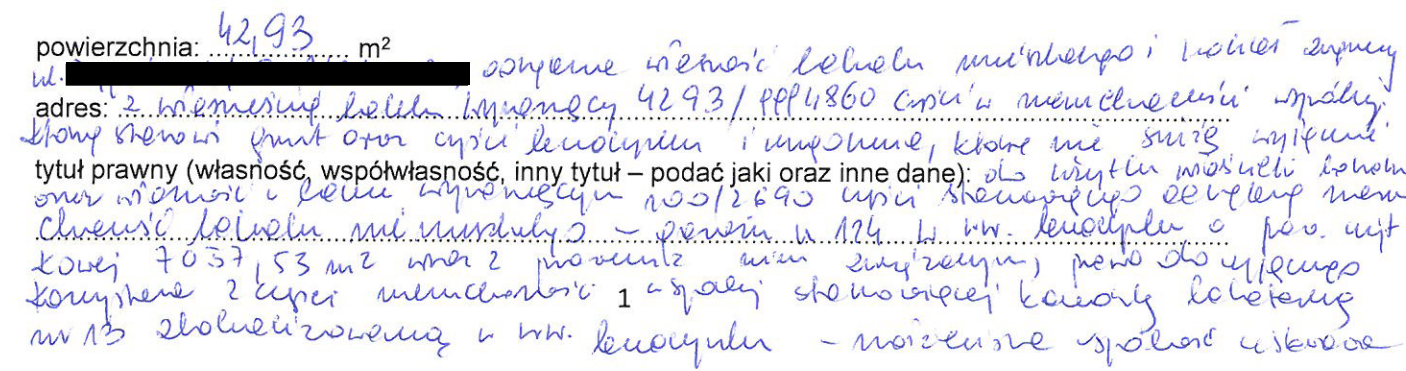 powierzchnia: 42,93 m²
ul. odrębna własność lokalu mieszkalnego i udział związany
adres: z własnością lokalu wynoszący 4293/ części w nieruchomości wspólnej
którą stanowi grunt oraz części budynku i urządzenia, które nie służą wyłącznie
tytuł prawny (własność, współwłasność, inny tytuł – podać jaki oraz inne dane): do użytku właścicieli lokalu
oraz własność w wynoszącym 100/2690 części stanowiącego odrębną nieru
chomość lokalu niemieszkalnego – garażu w w ww. budynku o pow. użyt
kowej 7037,53 m² wraz z prawem z nim związanym, prawo do wyłącznego
korzystania z części nieruchomości wspólnej stanowiącej komórkę lokatorską
1
nr 13 zlokalizowaną w ww. budynku – małżeńska wspólność ustawowa